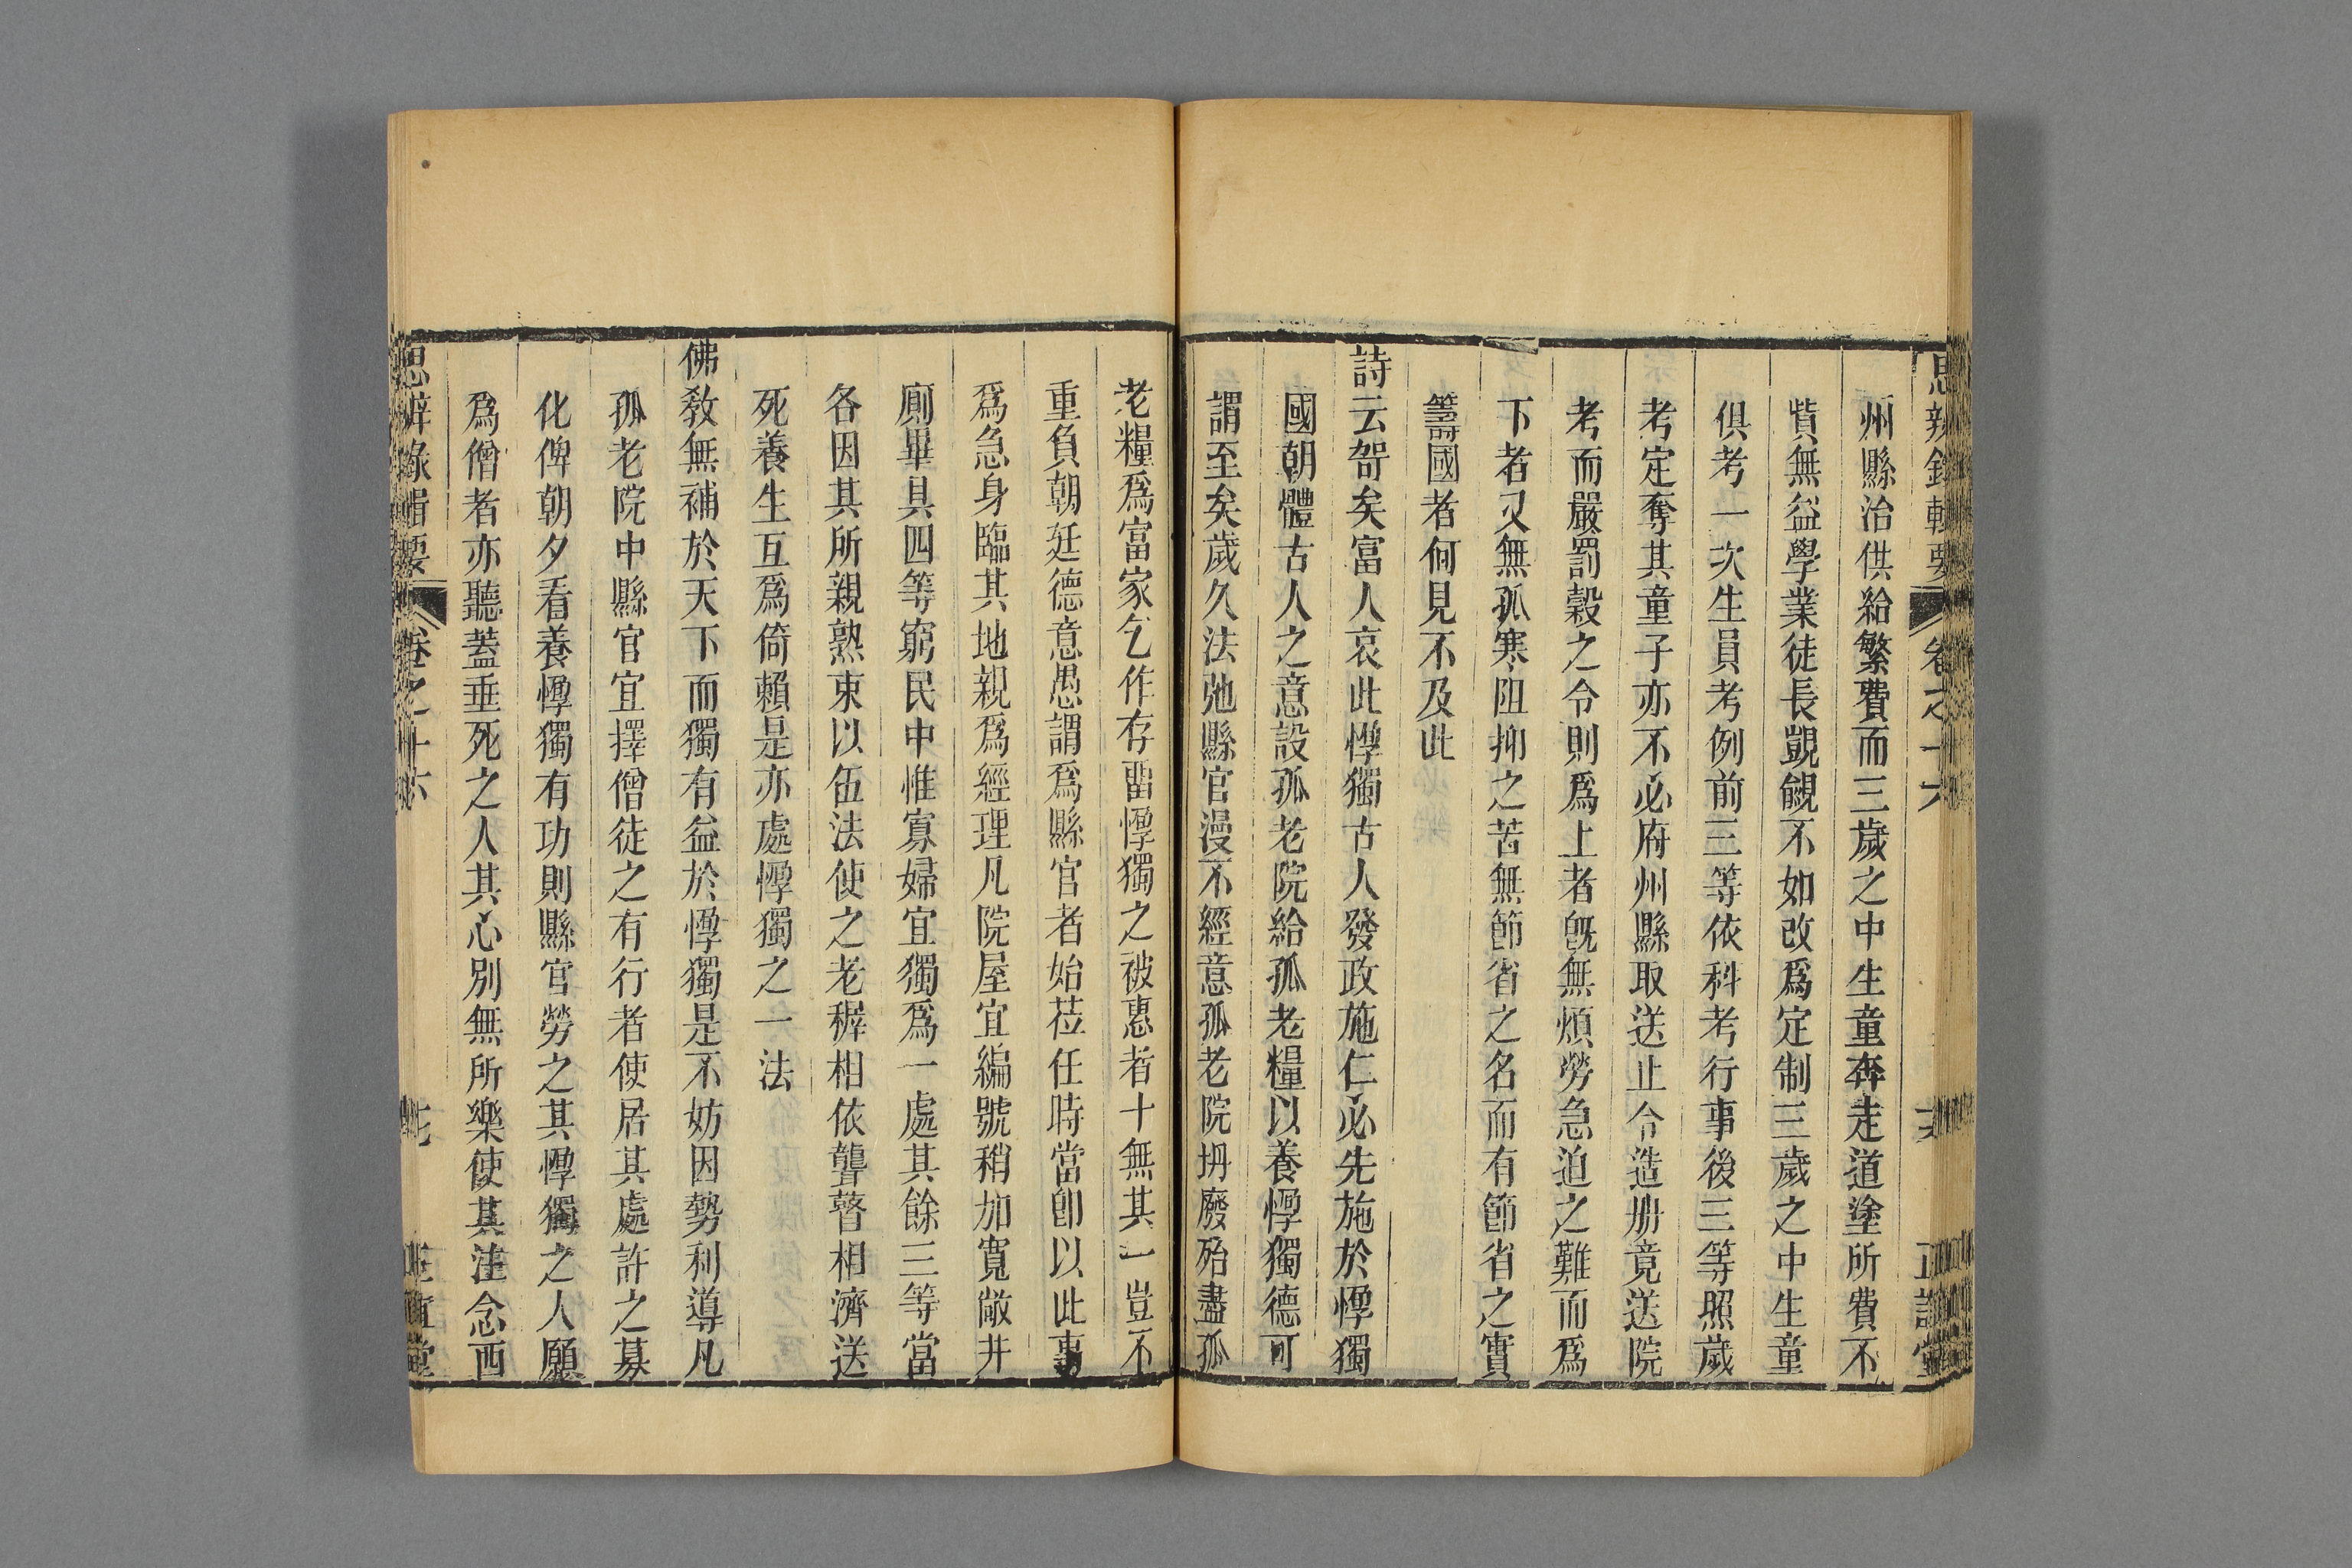 思辨錄輯要 卷之十六 正誼堂
州縣治供給繁費而三歲之中生童奔走道塗所費不
貲無益學業徒長覬覦不如改爲定制三歲之中生童
俱考一次生員考例前三等依科考行事後三等照歲
考定奪其童子亦不必府州縣取送止令造册竟送院
考而嚴罰穀之令則爲上者旣無煩勞急迫之難而爲
下者又無孤寒阻抑之苦無節省之名而有節省之實
籌國者何見不及此
詩云哿矣富人哀此惸獨古人發政施仁必先施於惸獨
國朝體古人之意設孤老院給孤老糧以養惸獨德可
謂至矣歲久法弛縣官漫不經意孤老院坍廢殆盡孤
老糧爲富家乞作存畱惸獨之被惠者十無其一豈不
重負朝廷德意愚謂爲縣官者始莅任時當卽以此事
爲急身臨其地親爲經理凡院屋宜編號稍加寬敞井
廁畢具四等窮民中惟寡婦宜獨爲一處其餘三等當
各因其所親熟束以伍法使之老穉相依聾瞽相濟送
死養生互爲倚賴是亦處惸獨之一法
佛敎無補於天下而獨有益於惸獨是不妨因勢利導凡
孤老院中縣官宜擇僧徒之有行者使居其處許之募
化俾朝夕看養惸獨有功則縣官勞之其惸獨之人願
爲僧者亦聽蓋垂死之人其心別無所樂使其注念西
思辨錄輯要 卷之十六 七 正誼堂